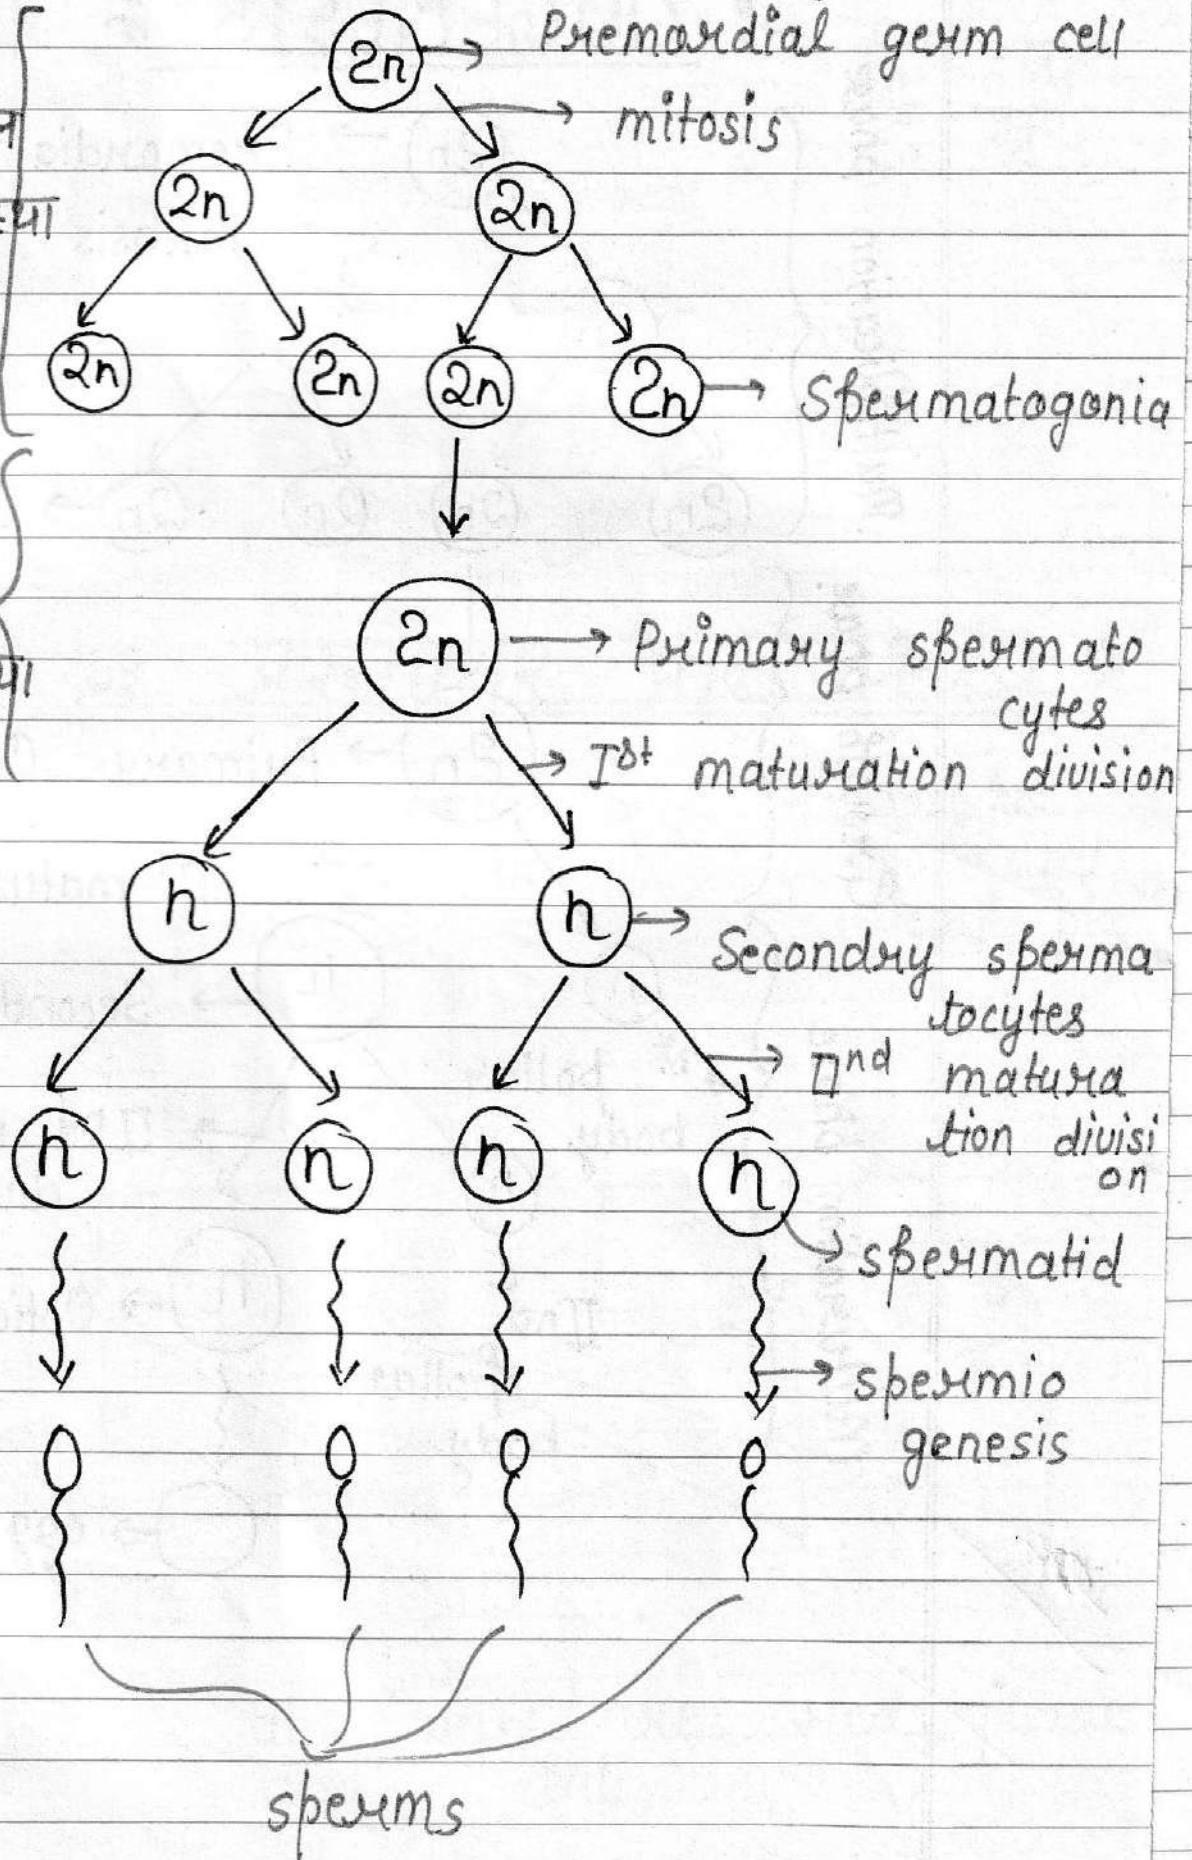 2n
Premordial germ cell
mitosis
2n 2n
2n 2n 2n 2n
Spermatogonia
2n
Primary spermato
cytes
Ist maturation division
n n
Secondry sperma
tocytes
IInd matura
tion divisi
on
n n n n
spermatid
spermio
genesis
sperms